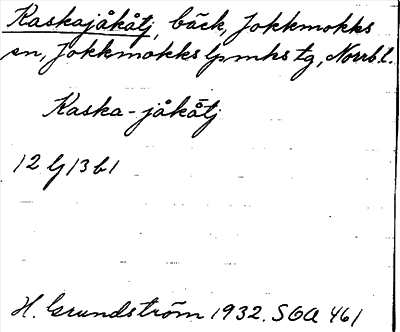 Kaskajåkåtj, bäck, Jokkmokks
sn, Jokkmokks lpmks tg, Norrb.l.
Kaska-jåkåtj
12 lj 13 b 1
H. Grundström 1932. SOA 461